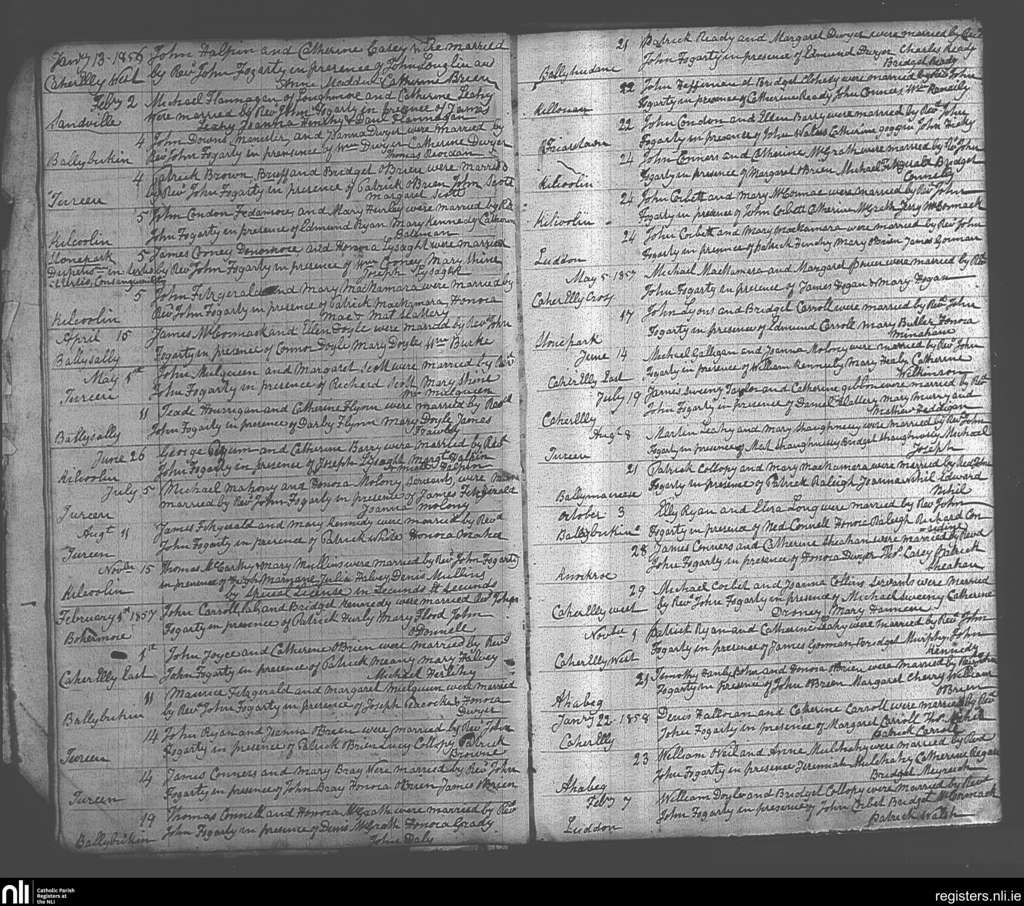 Janry 13 - 1856 John Halpin and Catherine Casey were married
Caherelly West by Revd John Fogarty in presence of John Loughlin and
Anne Madden Catherine Brien
Febry 2 Michael Flannagan of Loughmore and Catherine Leahy
Sandville Were married by Revd John Fogarty in presence of James
Leahy Joanna Hinchy & Danl Flannagan
4 John Downs Manister, and Joanna Dwyer were married by
Ballybrikin Revd John Fogarty in presence of Wm Dwyer Catherine Dwyer
Thomas Reordan
4 Patrick Brown Bruff and Bridget O'Brien were married
Tureen by Revd John Fogarty in presence of Patrick O'Brien John Scott
Margaret Scott
5 John Condon Fedamore, and Mary Hurley were married by Revd
Kilcoolin John Fogarty in presence of Edmund Ryan Mary Kennedy Catherine
Stonepark 5 James Cooney Donomore and Honora Lysaght were married
by Revd John Fogarty in presence of Wm Cooney Mary Shine
Joseph Lysaght
5 John Fitzgerald and Mary MacNamara were married by
Kilcoolin Revd John Fogarty in presence of Patrick MacNamara, Honora
Mac & Mat Slattery
April 15 James McCormack and Ellen Doyle were married by Revd John
Ballysally Fogarty in presence of Connor Doyle Mary Doyle Wm Burke
May 1st John Mulqueen and Margaret Scott were married by Revd
Tureen John Fogarty in presence of Richard Scott Mary Shine
Wm Mulqueen
11 Teade Hourigan and Catherine Flynn were married by Revd
Ballysally John Fogarty in presence of Darby Flynn Mary Doyle James
June 26 George and Catherine Barry were married by Revd
Kilcoolin John Fogarty in presence of Joseph Lysaght Margt Halpin
Halpin
July 5 Michael Mahony and Honora Molony Servants were
Tureen married by Revd John Fogarty in presence of James Fitzgerald
Joanna Molony
Augt 11 James Fitzgerald and Mary Kennedy were married by Revd
Tureen John Fogarty in presence of Patrick Honora
Novbr 15 Thomas McCarthy & Mary Mullins were married by Revd John Fogarty
Kilcoolin in presence of Julia Halvey Denis Mullins
by Special License in Secundo et Secundo
February 1st 1857 John Carroll and Bridget Kennedy were married Revd John
Bohermore Fogarty in presence of Patrick Hurly Mary Flood John
O'Donnell
1st John Joyce and Catherine O'Brien were married by Revd
Caherelly East John Fogarty in presence of Patrick Meany Mary Halvey
Michael Herlihy
11 Maurice Fitzgerald and Margaret Mulqueen were married
Ballybrikin by Revd John Fogarty in presence of Joseph Peacocke & Honora
Dwyer
14 John Ryan and Joanna O'Brien were married by Revd John
Tureen Fogarty in presence of Patrick O'Brien Lucy Collopy Patrick
Browne
14 James Connors and Mary Bray Were married by Revd John
Tureen Fogarty in presence of John Bray Honora O'Brien James O'Brien
19 Thomas Connell and Honora McGrath were married by Revd
Ballybrikin John Fogarty in presence of Denis McGrath Honora Grady
John Daly
21 Patrick Ready and Margaret Dwyer were married by Revd
John Fogarty in presence of Edmund Dwyer Charles Ready
Bridget Ready
22 John Heffernan & Bridget Clohesy were married by Revd John
Killonan Fogarty in presence of Catherine Ready John Connor & Wm
22 John Condon and Ellen Barry were married by Revd John
Friarstown Fogarty in presence of John Walsh Catherine Goggin John Hicky
24 John Conners and Catherine McGrath were married by Revd John
Kilcoolin Fogarty in presence of Margaret O'Brien Michael Fitzgerald Bridget
24 John Corbett and Mary McCormac were married by Revd John
Kilcoolin Fogarty in presence of John Corbett Catherine McGrath Jerry McCormack
24 John Corbett and Mary MacNamara were married by Revd John
Luddon Fogarty in presence of Patrick Mary O'Brien James Gorman
May 5 1857 Michael MacNamara and Margaret were married by Revd
Caherelly Cross John Fogarty in presence of James Hogan & Mary Hogan
17 John Lyons and Bridget Carroll were married by Revd John
Stonepark Fogarty in presence of Edmund Carroll Mary Butler Honora
Minehane
June 14 Michael Galligan and Joanna Molony were married by Revd John
Caherelly East Fogarty in presence of William Kennedy Mary Healy Catherine
Wilkinson
July 19 James Sweeny Taylor and Catherine Gibbon were married by Revd
Caherelly John Fogarty in presence of Daniel Slattery Mary Murry and
Mathew Feddigan
Augt 8 Martin Leahy and Mary Shaughnessy were married by Revd John
Tureen Fogarty in presence of Mat Shaughnessy Bridget Shaughnessy Michael
Joseph
21 Patrick Collopy and Mary MacNamara were married by Revd John
Fogarty in presence of Patrick Raleigh Joanna Edward
October 3 Elly Ryan and Eliza Long were married by Revd John
Ballybrickin Fogarty in presence of Ned Connell Honora Raleigh Richard
28 James Conners and Catherine Sheahan were married by Revd
Knockroe John Fogarty in presence of Honora Dwyer Thos Casey & Patrick
Sheahan
29 Michael Corbet and Joanna Collins Servants were married
Caherelly West by Revd John Fogarty in presence of Michael Sweeny Catherine
Droney Mary Hannen
Novbr 1 Patrick Ryan and Catherine Leahy were married by Revd John
Caherelly West Fogarty in presence of James Gorman Bridget Murphy & John
Kennedy
21 Timothy Hanly and Honora O'Brien were married by Revd John
Ahabeg Fogarty in presence of John O'Brien Margaret Cherry William
O'Brien
Janry 22 1858 Denis Halloran and Catherine Carroll were married by Revd
Caherelly John Fogarty in presence of Margaret Carroll Thos
Patrick Carroll
23 William Neil and Anne Mulchahy were married by Revd
Ahabeg John Fogarty in presence Jeremiah Mulchahy Catherine Regan
Bridget
Febry 7 William Doyle and Bridget Collopy were married by Revd
Luddon John Fogarty in presence of John Corbet Bridget McCormack
Patrick Walsh
nli
Catholic Parish
Registers at
the NLI
registers.nli.ie